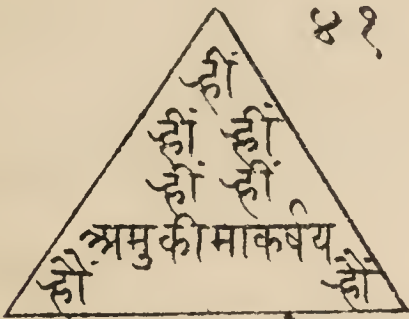 ४१
ह्रीं
ह्रीं ह्रीं
ह्रीं ह्रीं
अमुकीमाकर्षय
ह्रौं ह्रौं